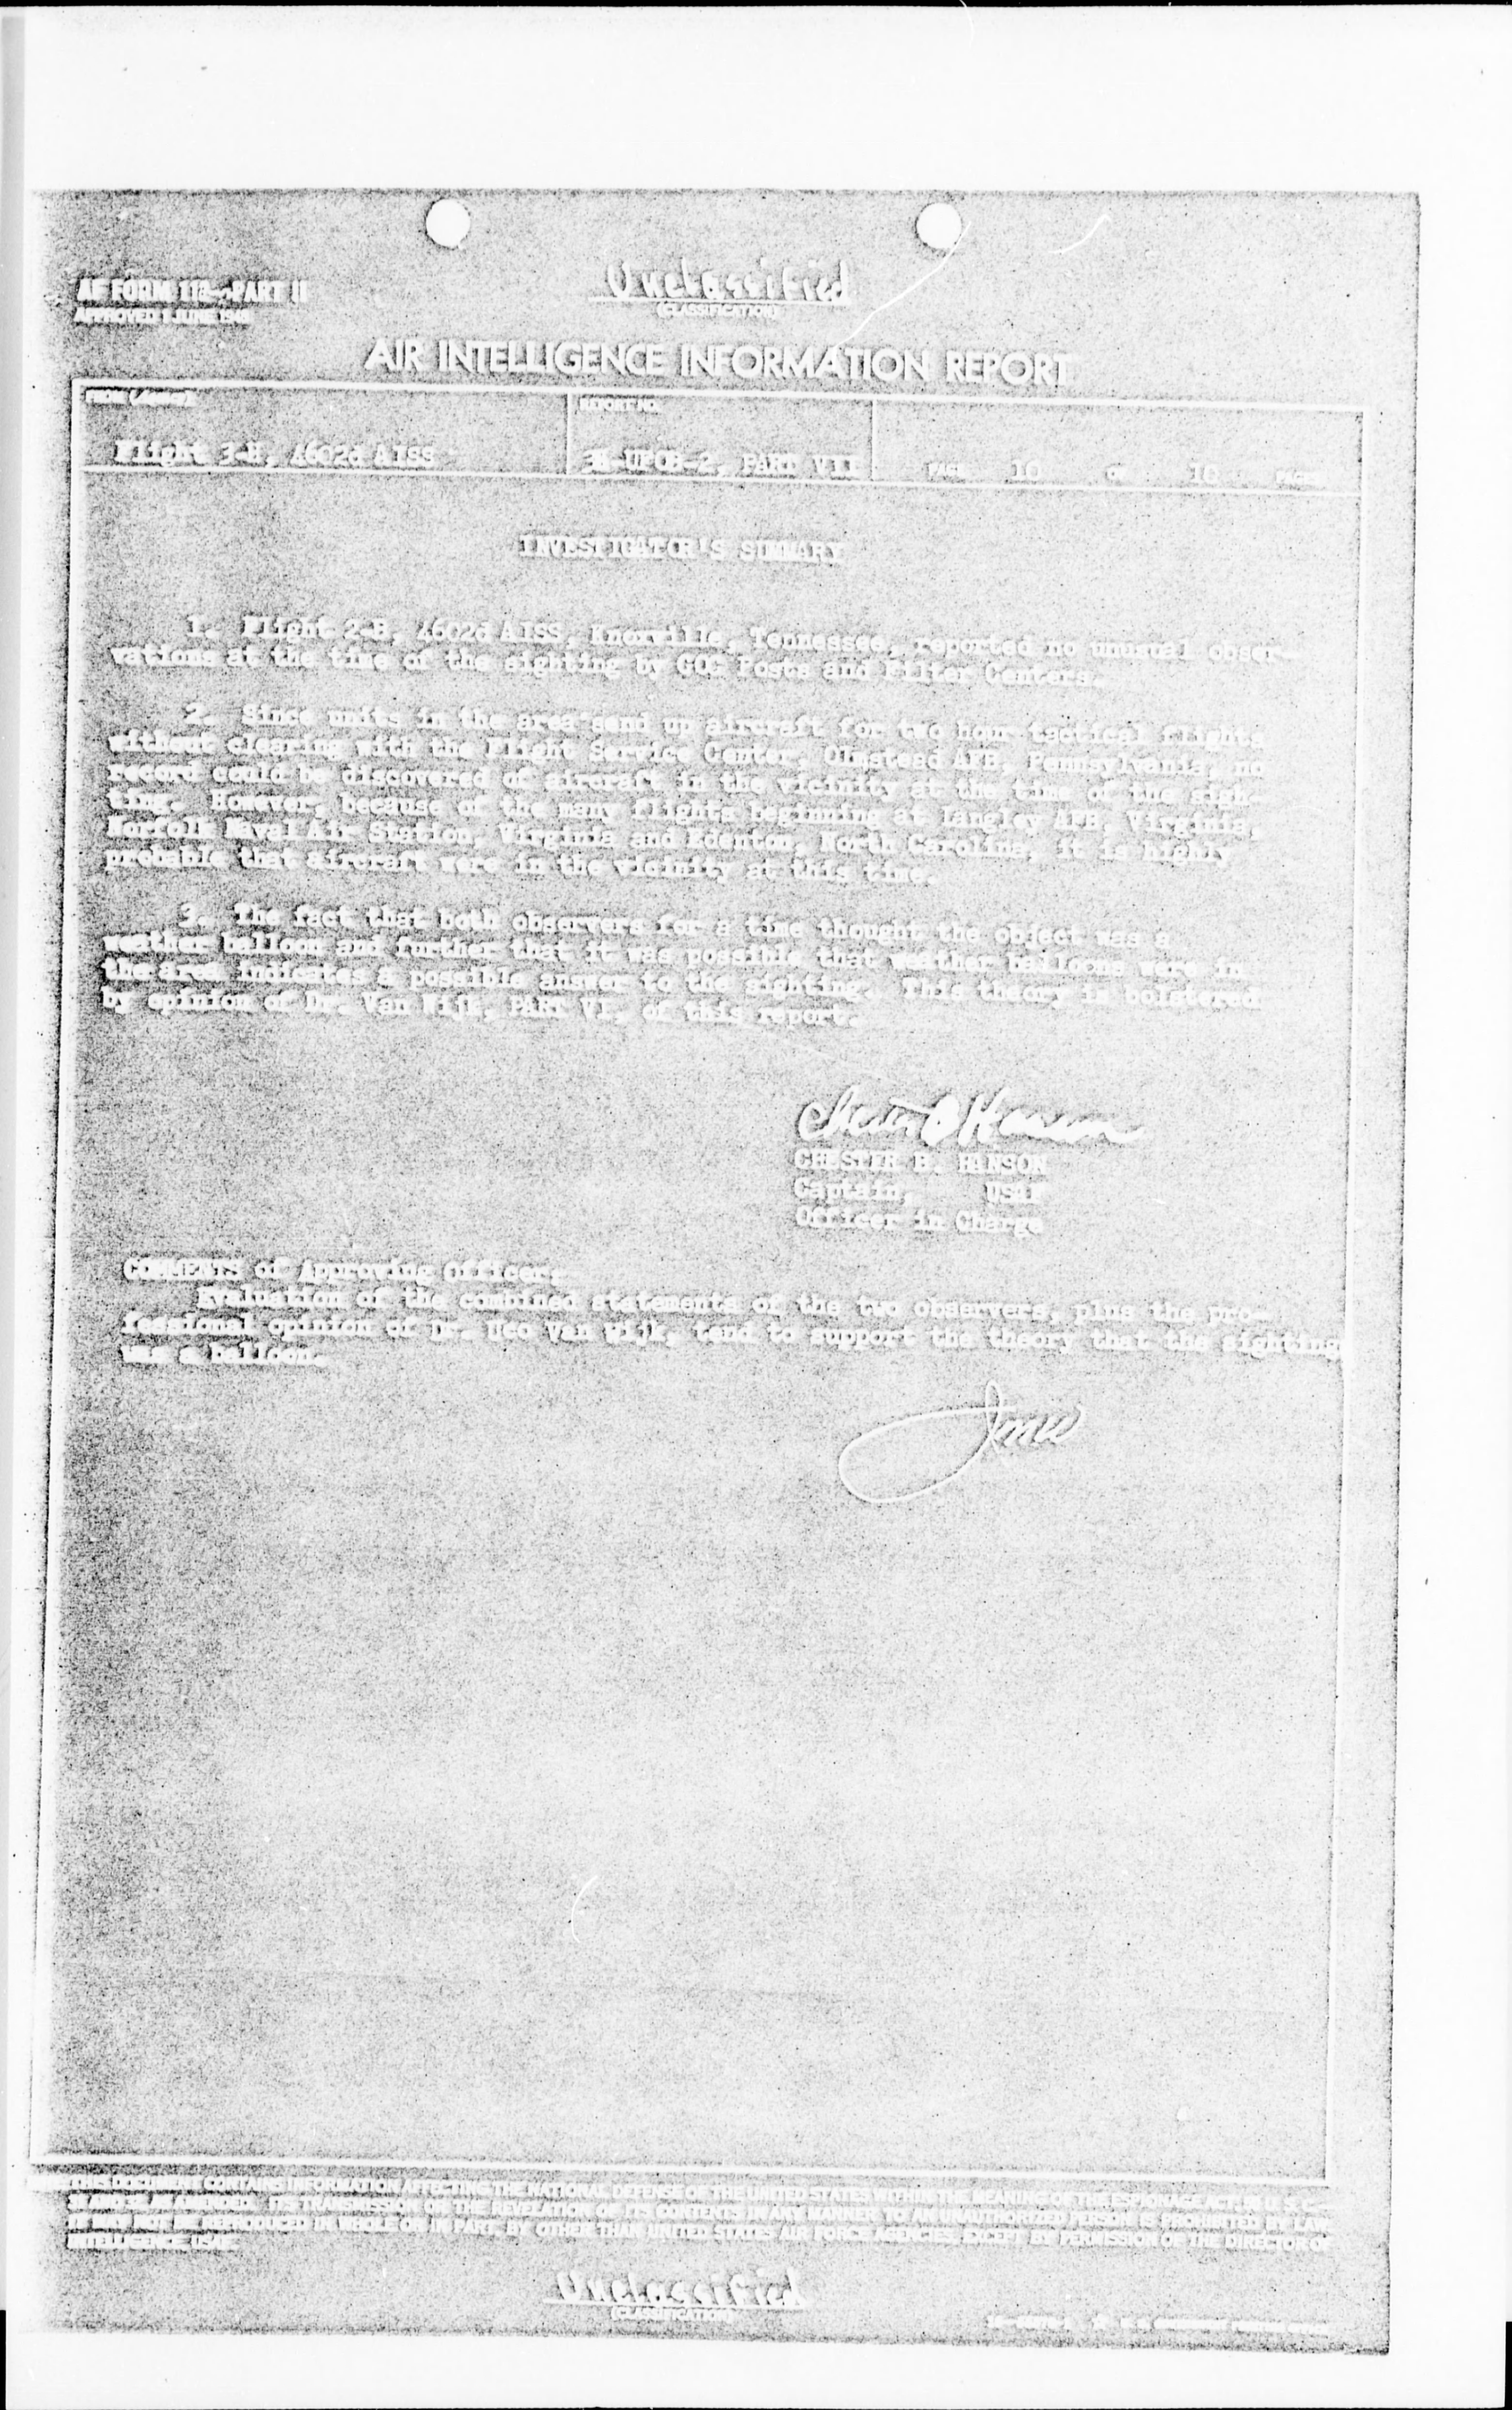 Unclassified
(CLASSIFICATION)
AF FORM 112—PART II
APPROVED 1 JUNE 1948
AIR INTELLIGENCE INFORMATION REPORT
FROM (Agency)
REPORT NO.
Flight 3-H, 4602d AISS
3H-UFOB-2, PART VII
PAGE 10 OF 10 PAGES
INVESTIGATOR'S SUMMARY
1. Flight 2-B, 4602d AISS, Knoxville, Tennessee, reported no unusual obser-
vations at the time of the sighting by GOC Posts and Filter Centers.
2. Since units in the area send up aircraft for two hour tactical flights
without clearing with the Flight Service Center, Olmstead AFB, Pennsylvania, no
record could be discovered of aircraft in the vicinity at the time of the sigh-
ting. However, because of the many flights beginning at Langley AFB, Virginia,
Norfolk Naval Air Station, Virginia and Edenton, North Carolina, it is highly
probable that aircraft were in the vicinity at this time.
3. The fact that both observers for a time thought the object was a
weather balloon and further that it was possible that weather balloons were in
the area indicates a possible answer to the sighting. This theory is bolstered
by opinion of Dr. Van Wijk, PART VI, of this report.
CHESTER B. HANSON
Captain, USAF
Officer in Charge
COMMENTS of Approving Officer:
Evaluation of the combined statements of the two observers, plus the pro-
fessional opinion of Dr. Uco Van Wijk, tend to support the theory that the sighting
was a balloon.
THIS DOCUMENT CONTAINS INFORMATION AFFECTING THE NATIONAL DEFENSE OF THE UNITED STATES WITHIN THE MEANING OF THE ESPIONAGE ACT, 50 U. S. C.—
31 AND 32, AS AMENDED. ITS TRANSMISSION OR THE REVELATION OF ITS CONTENTS IN ANY MANNER TO AN UNAUTHORIZED PERSON IS PROHIBITED BY LAW.
IT MAY NOT BE REPRODUCED IN WHOLE OR IN PART, BY OTHER THAN UNITED STATES AIR FORCE AGENCIES, EXCEPT BY PERMISSION OF THE DIRECTOR OF
INTELLIGENCE, USAF.
Unclassified
(CLASSIFICATION)